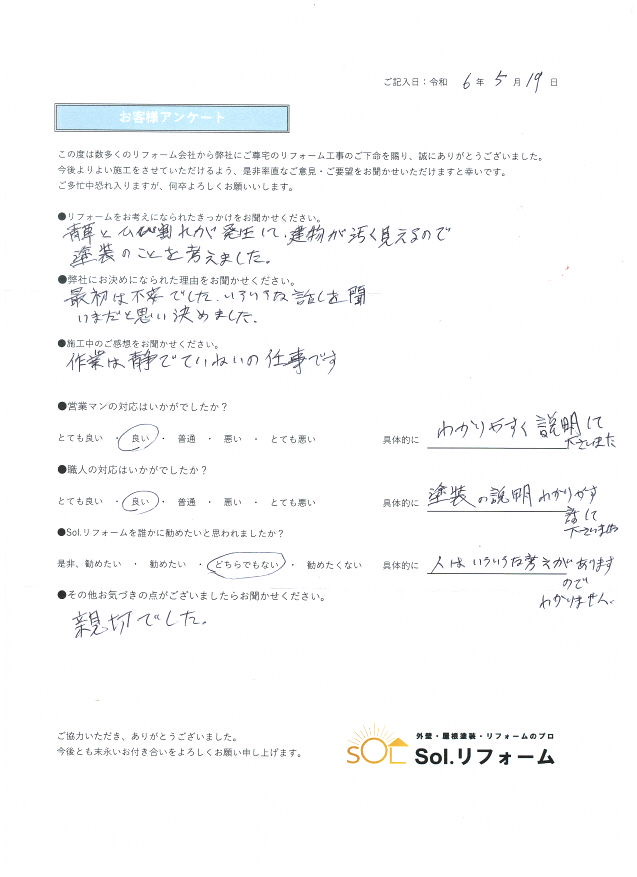 ご記入日：令和 6年 5月 19日
お客様アンケート
この度は数多くのリフォーム会社から弊社にご尊宅のリフォーム工事のご下命を賜り、誠にありがとうございました。
今後よりよい施工をさせていただけるよう、是非率直なご意見・ご要望をお聞かせいただけますと幸いです。
ご多忙中恐れ入りますが、何卒よろしくお願いいします。
●リフォームをお考えになられたきっかけをお聞かせください。
と ひび割れが発生して、建物が汚く見えるので
塗装のことを考えました。
●弊社にお決めになられた理由をお聞かせください。
最初は不安でした。いろいろな話しを聞
いまだと思い決めました。
●施工中のご感想をお聞かせください。
作業は静でていねいの仕事です
●営業マンの対応はいかがでしたか？
とても良い ・ 良い ・ 普通 ・ 悪い ・ とても悪い 具体的に わかりやすく説明して
下さいました
●職人の対応はいかがでしたか？
とても良い ・ 良い ・ 普通 ・ 悪い ・ とても悪い 具体的に 塗装の説明わかりやす
話して
下さいました
●Sol.リフォームを誰かに勧めたいと思われましたか？
是非、勧めたい ・ 勧めたい ・ どちらでもない ・ 勧めたくない 具体的に 人はいろいろな考えがあります
ので
わかりません。
●その他お気づきの点がございましたらお聞かせください。
親切でした。
ご協力いただき、ありがとうございました。
今後とも末永いお付き合いをよろしくお願い申し上げます。
SOL
外壁・屋根塗装・リフォームのプロ
Sol.リフォーム